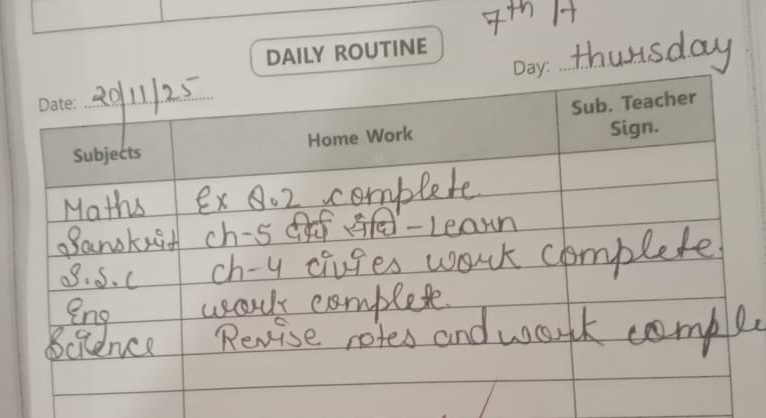 7th A
DAILY ROUTINE
Date: 20/11/25 Day: thursday
Subjects Home Work Sub. Teacher Sign.
Maths Ex 8.2 complete
Sanskrit ch-5 दीर्घ संधि - Learn
S.S.C ch-4 civies work complete
Eng work complete
Science Revise notes and work comple